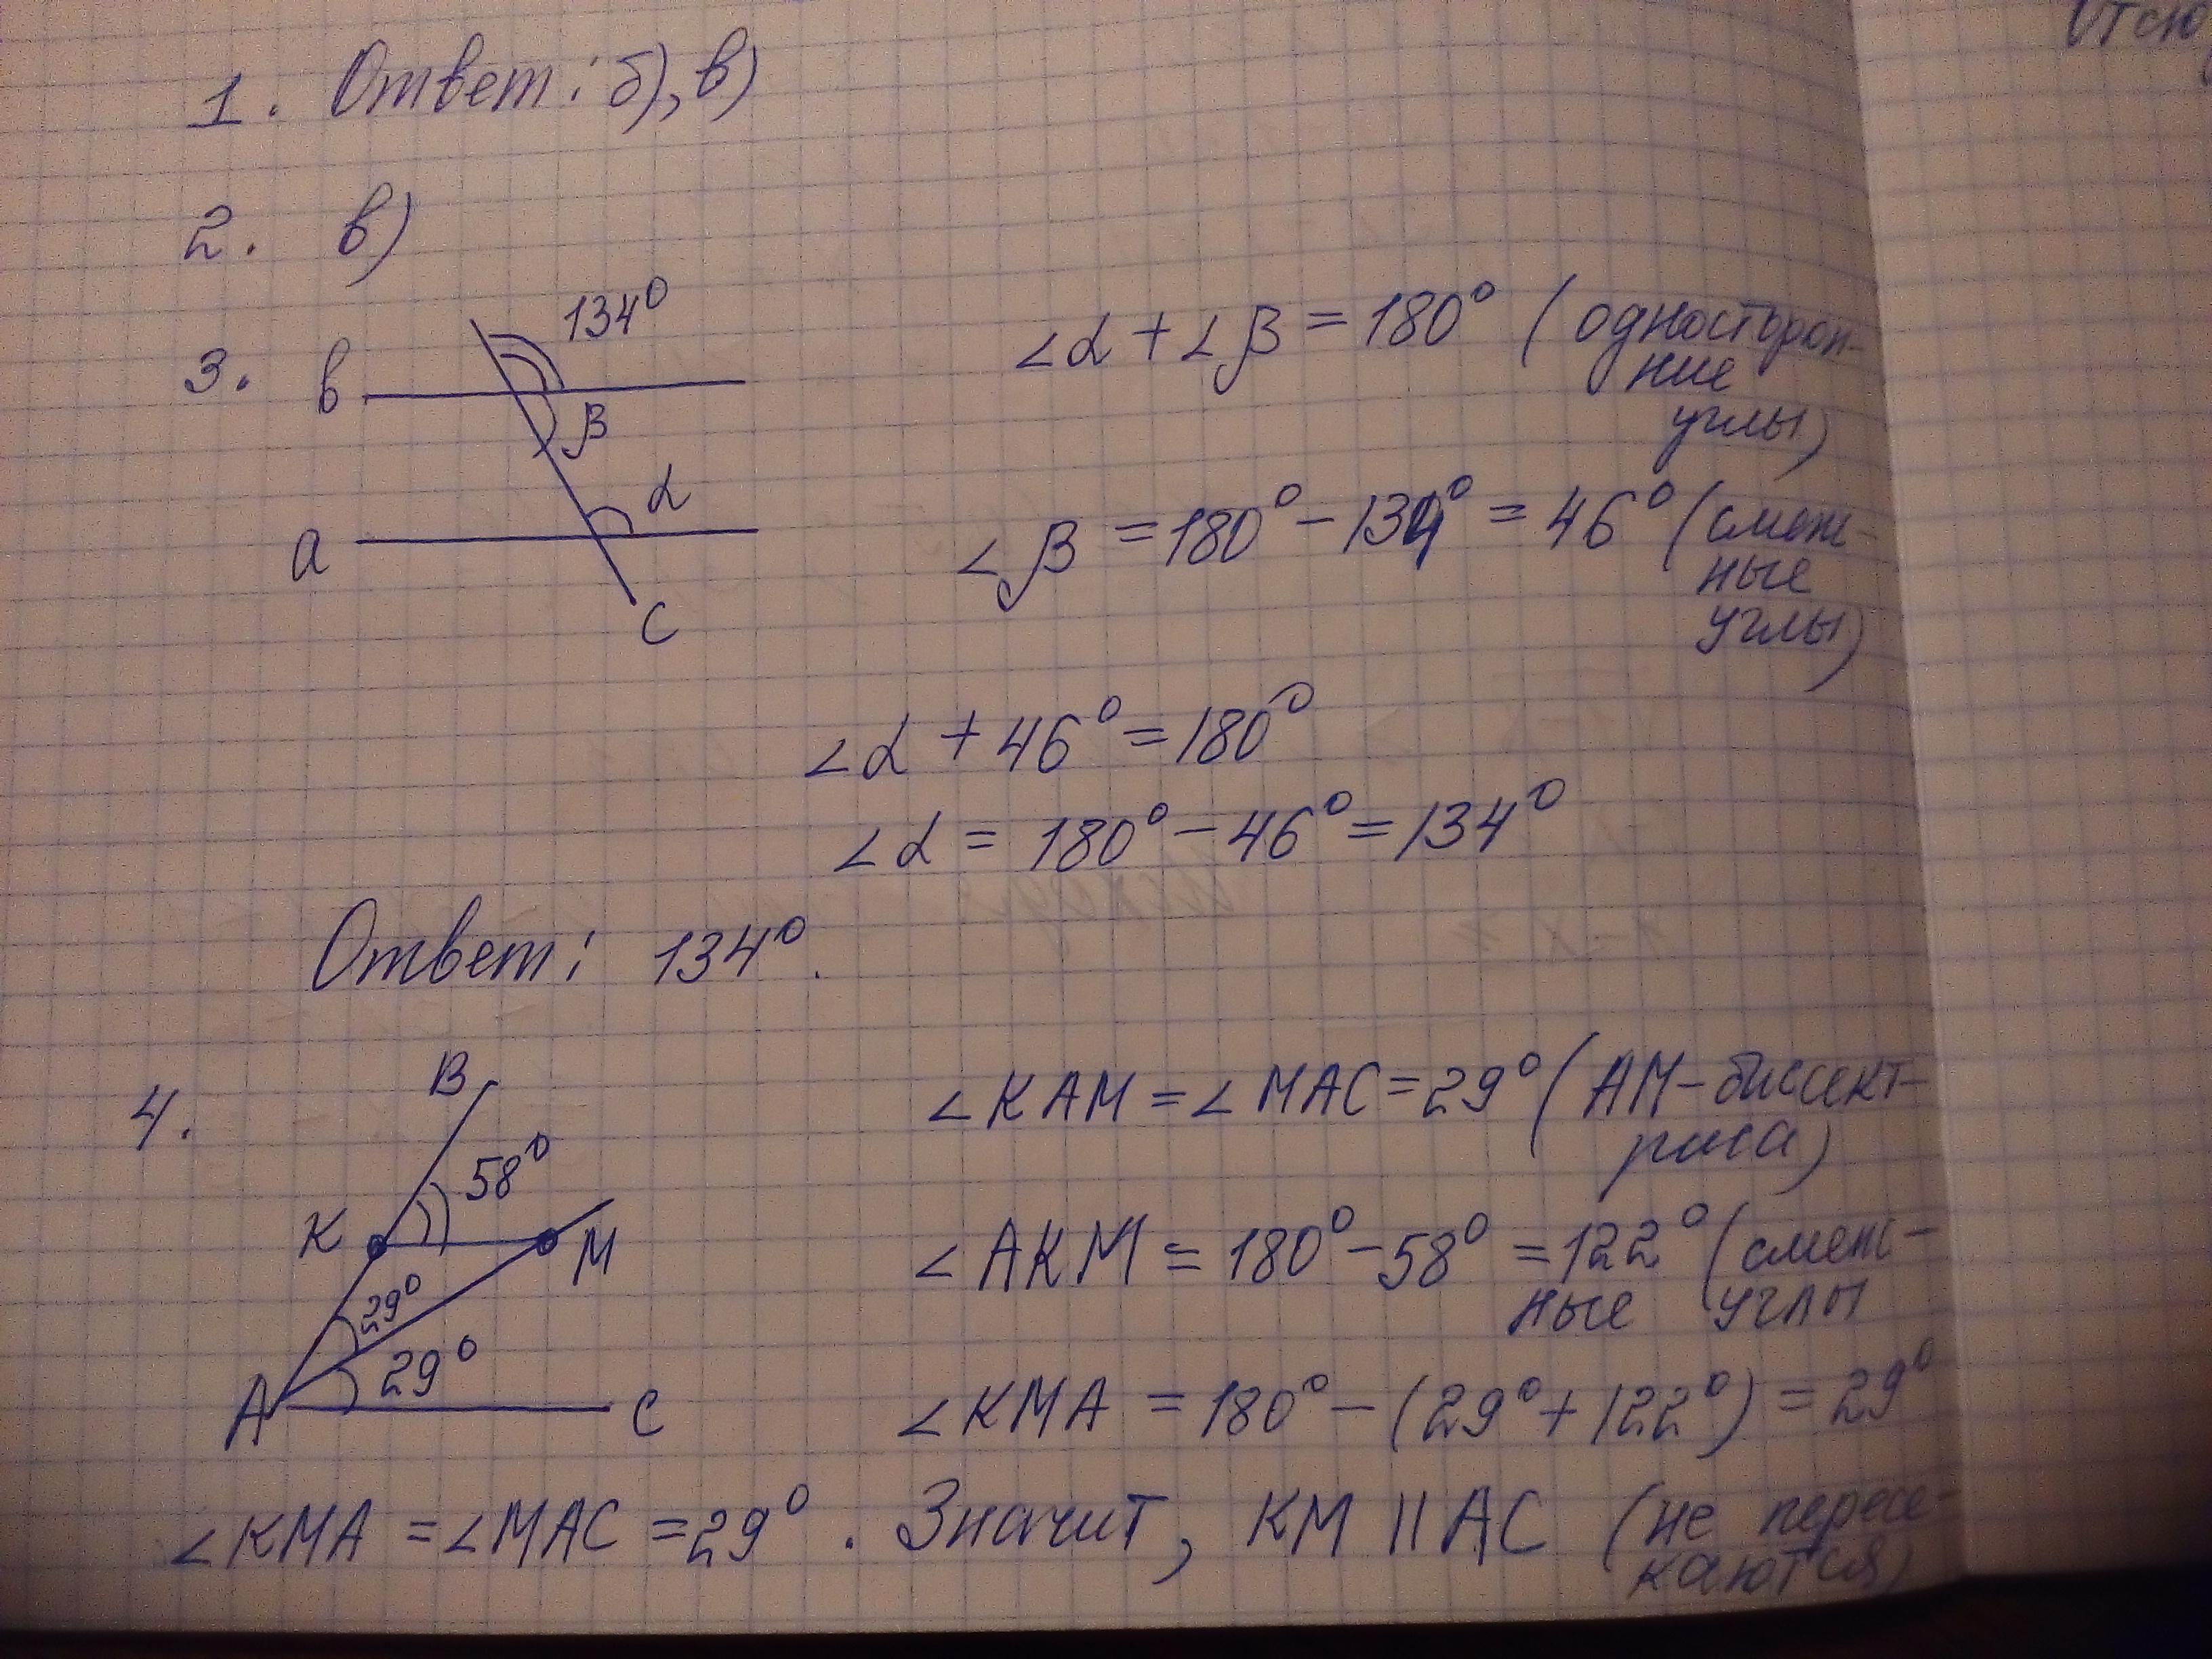 1. Ответ: б), в)
2. в)
3.
134°
в
β
α
а
с
∠α + ∠β = 180° (односторон-
ние
углы)
∠β = 180° - 134° = 46° (смеж-
ные
углы)
∠α + 46° = 180°
∠α = 180° - 46° = 134°
Ответ: 134°.
4.
В
58°
К
М
29°
29°
А
С
∠КАМ = ∠МАС = 29° (АМ - биссект-
риса)
∠АКМ = 180° - 58° = 122° (смеж-
ные углы
∠КМА = 180° - (29° + 122°) = 29°
∠КМА = ∠МАС = 29°. Значит, КМ || АС (не пересе-
каются)